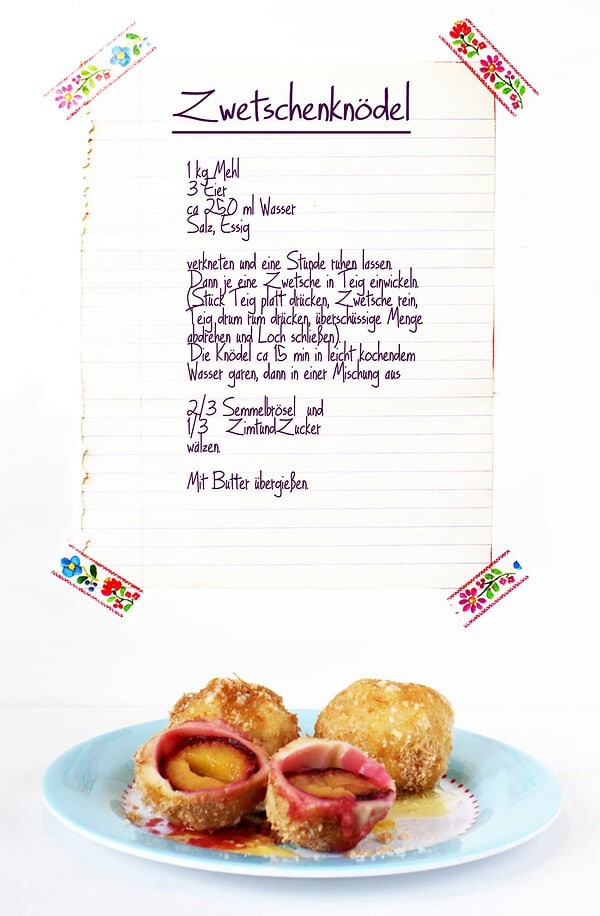 Zwetschenknödel
1 kg Mehl
3 Eier
ca 250 ml Wasser
Salz, Essig
verkneten und eine Stunde ruhen lassen.
Dann je eine Zwetsche in Teig einwickeln.
(Stück Teig platt drücken, Zwetsche rein,
Teig drum rum drücken, überschüssige Menge
abdrehen und Loch schließen).
Die Knödel ca 15 min in leicht kochendem
Wasser garen, dann in einer Mischung aus
2/3 Semmelbrösel und
1/3 ZimtundZucker
wälzen.
Mit Butter übergießen.